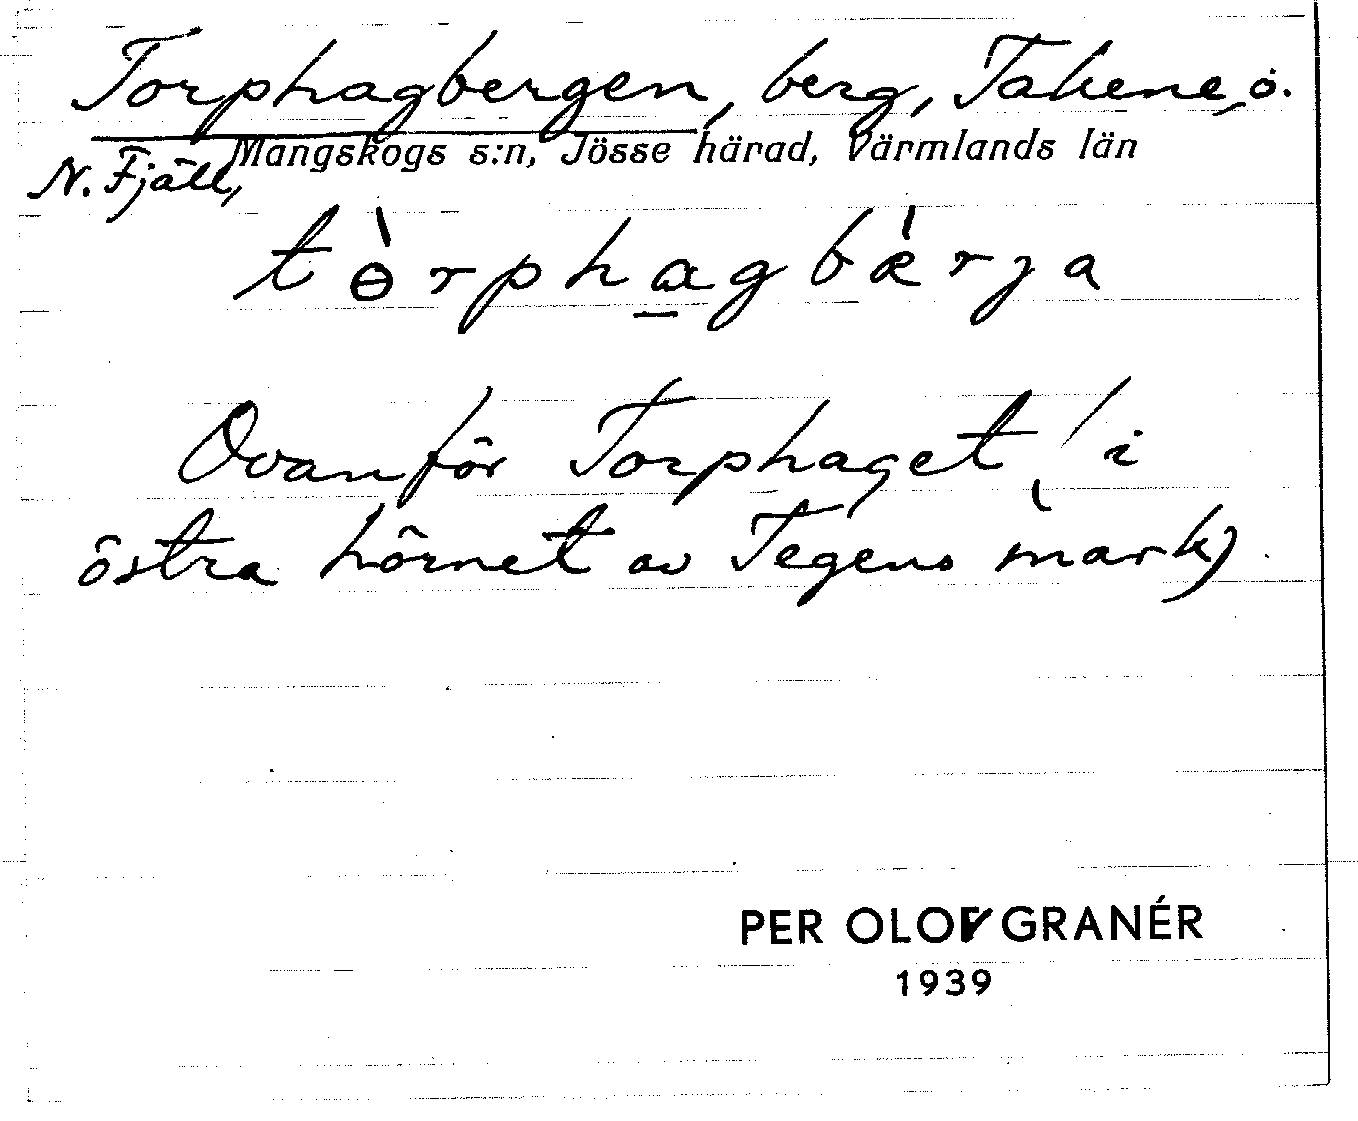 Torphagbergen, berg, Takene, ö.
N. Fjäll, Mangskogs s:n, Jösse härad, Värmlands län
tɵ̀rphagbǽrja
Ovanför Torphaget (i
östra hörnet av Tegens mark).
PER OLOF GRANÉR
1939